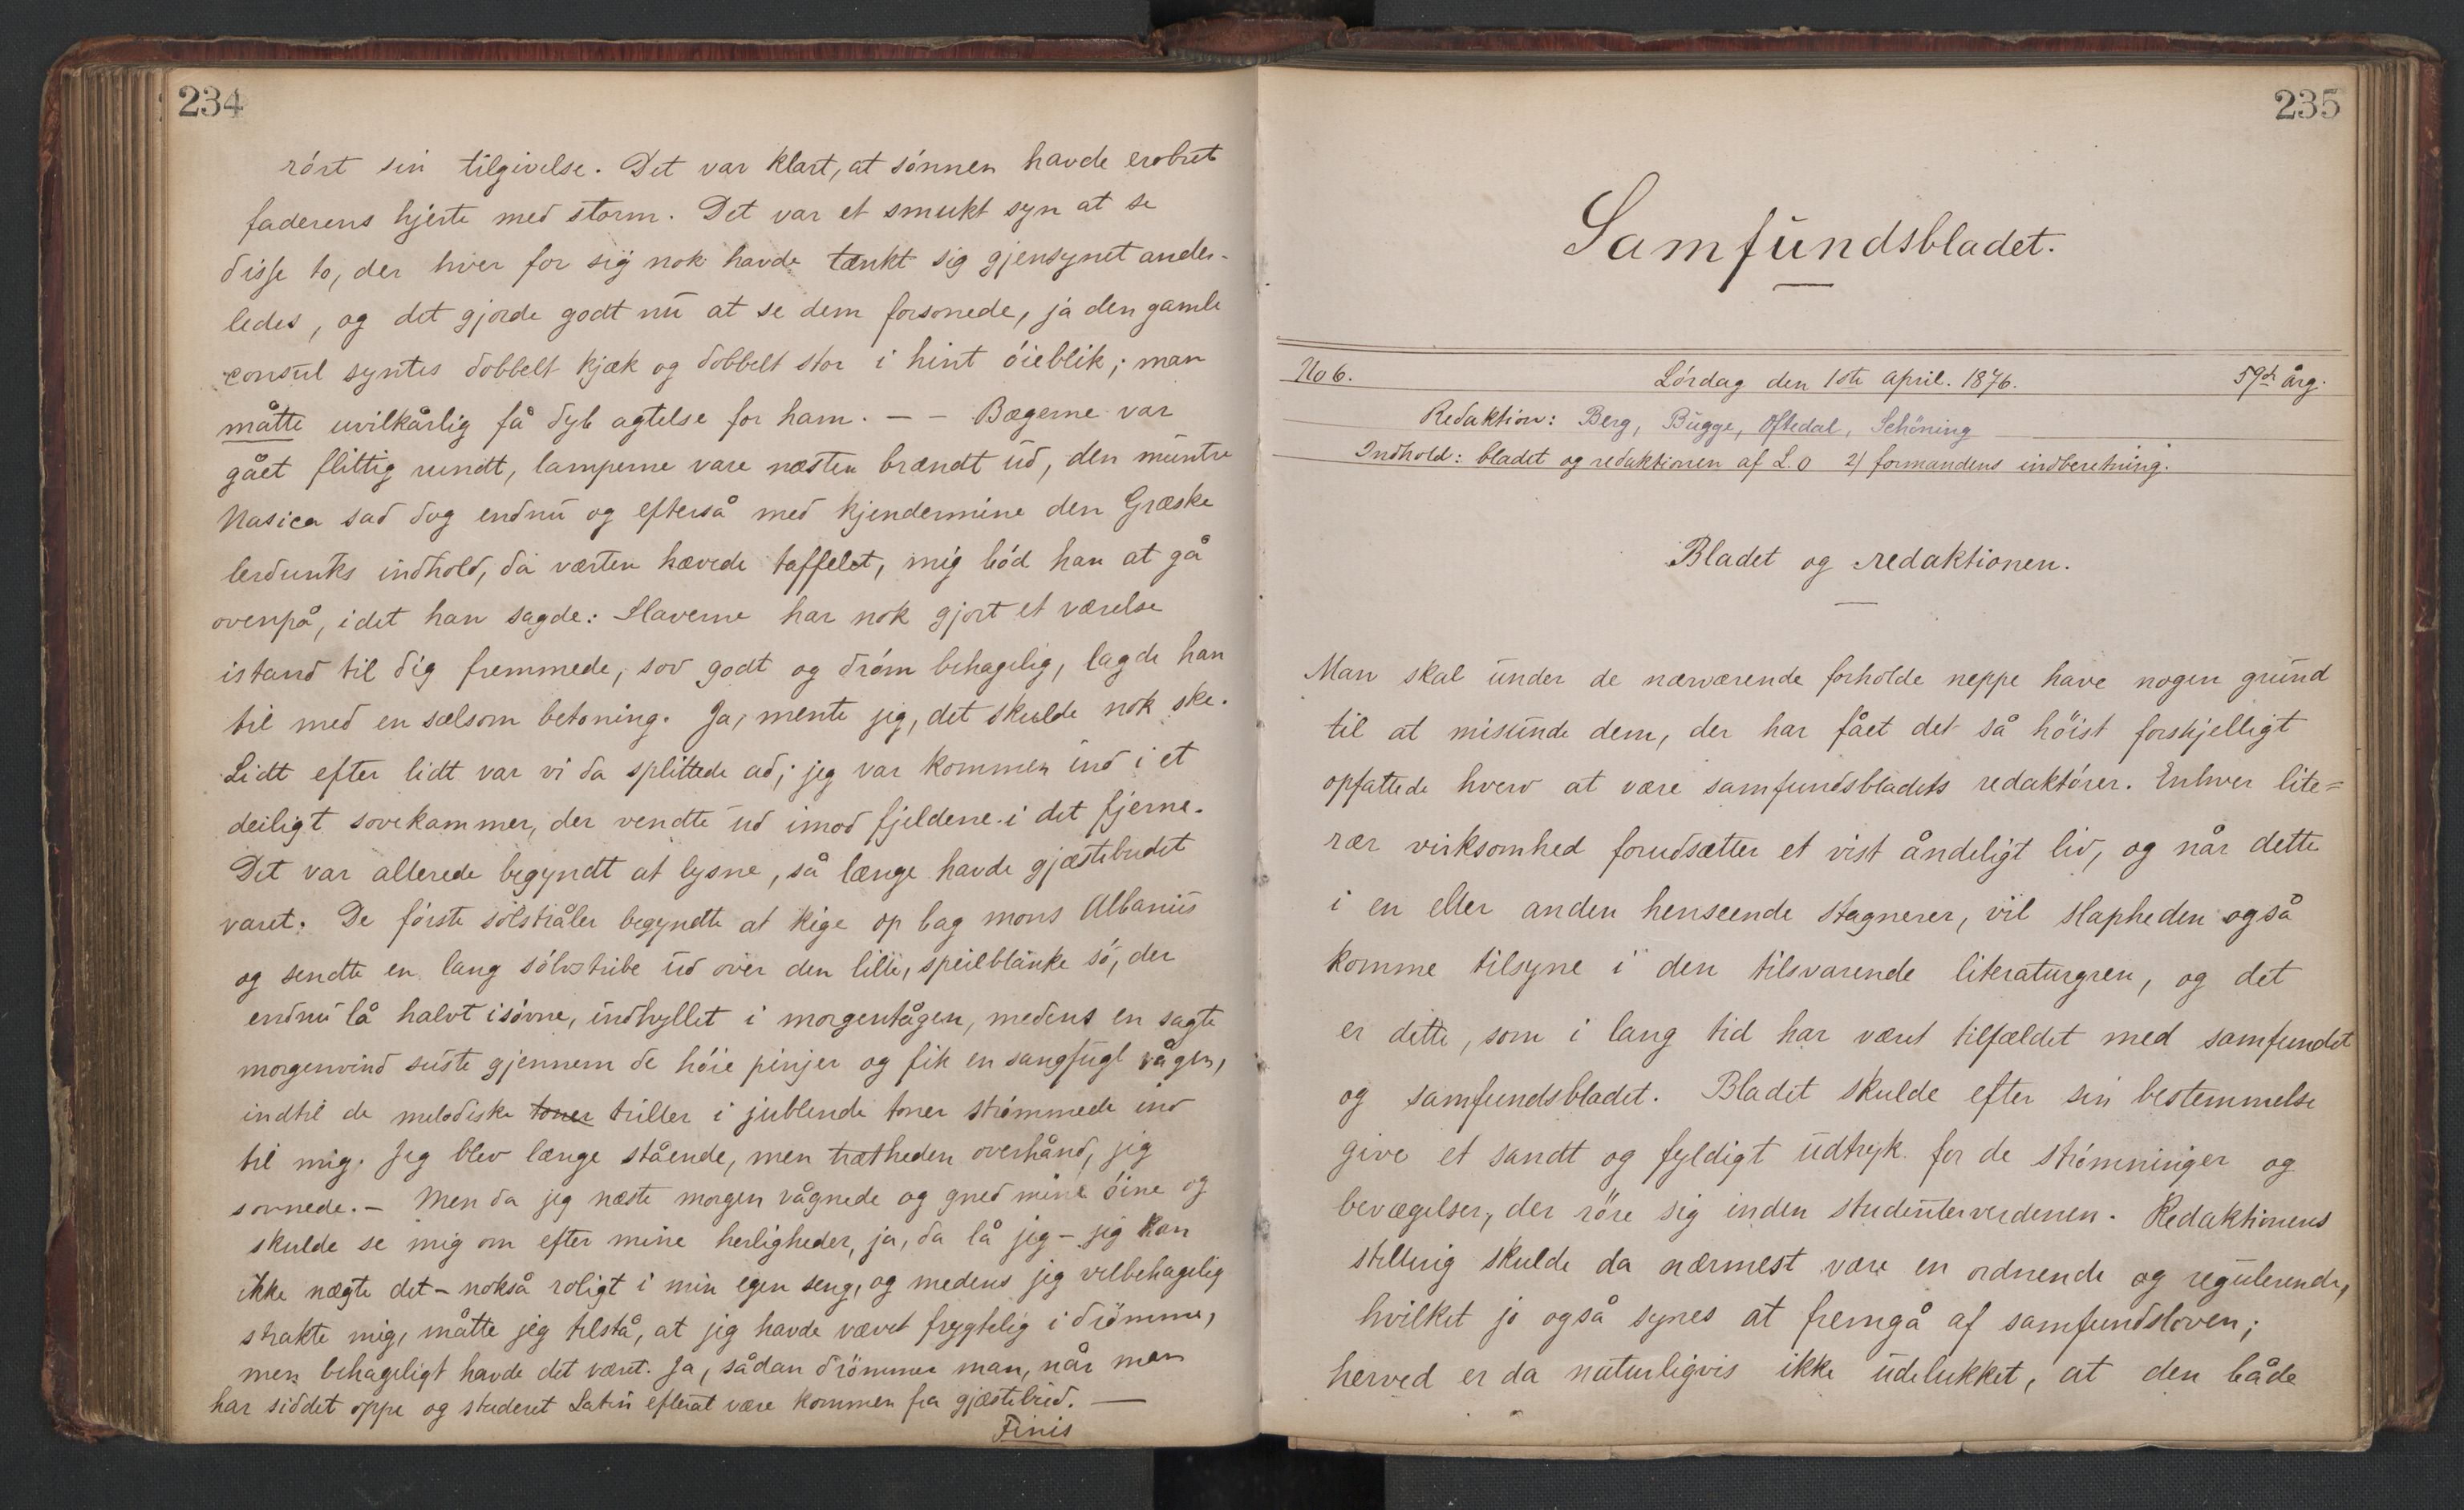 234
rört sin tilgivelse. Det var klart, at sönnen havde erobret
faderens hjerte med storm. Det var et smukt syn at se
disse to, der hver for sig nok havde tænkt sig gjensynet ander-
ledes, og det gjorde godt nu at se dem forsonede, ja den gamle
consul syntes dobbelt kjæk og dobbelt stor i hint öieblik; man
måtte uvilkårlig få dyb agtelse for ham. – – Bægerne var
gået flittig rundt, lamperne vare næsten brændt ud, den muntre
Nasica sad dog endnu og efterså med kjendermine den Græske
lerdunks indhold, da værten hævede taffelet, mig böd han at gå
ovenpå, idet han sagde: Slaverne har nok gjort et værelse
istand til dig fremmede, sov godt og dröm behagelig, lagde han
til med en sælsom betoning. Ja, mente jeg, det skulde nok ske.
Lidt efter lidt var vi da splittede ad; jeg var kommen ind i et
deiligt sovekammer, der vendte ud imod fjeldene i det fjerne.
Det var allerede begyndt at lysne, så længe havde gjæstebudet
varet. De förste solstråler begyndte at kige op bag mons Albanus
og sendte en lang sölvstribe ud over den lille, speilblanke sö, der
endnu lå halvt isövne, indhyllet i morgentågen, medens en sagte
morgenvind suste gjennem de höie pinjer og fik en sangfugl vågen,
indtil de melodiske toner triller i jublende toner strömmede ind
til mig. Jeg blev længe stående, men trætheden overhånd, jeg
sovnede. – Men da jeg næste morgen vågnede og gned mine öine og
skulde se mig om efter mine herligheder, ja, da lå jeg – jeg kan
ikke nægte det – nokså roligt i min egen seng, og medens jeg velbehagelig
strakte mig, måtte jeg tilstå, at jeg havde været frygtelig i drömme,
men behageligt havde det været. Ja, sådan drömmer man, når man
har siddet oppe og studeret Latin efterat være kommen fra gjæstebud. —
Finis
235
Samfundsbladet.
No 6. Lördag den 1ste April. 1876. 59de årg.
Redaktion: Berg, Bugge, Oftedal, Schöning
Indhold: bladet og redaktionen af L. O 2) formandens indberetning.
Bladet og redaktionen.
Man skal under de nærværende forholde neppe have nogen grund
til at misunde dem, der har fået det så höist forskjelligt
opfattede hverv at være samfundsbladets redaktörer. Enhver lite=
rær virksomhed forudsætter et vist åndeligt liv, og når dette
i en eller anden henseende stagnerer, vil slapheden også
komme tilsyne i den tilsvarende literaturgren, og det
er dette, som i lang tid har været tilfældet med samfundet
og samfundsbladet. Bladet skulde efter sin bestemmelse
give et sandt og fyldigt udtryk for de strömninger og
bevægelser, der röre sig inden studenterverdenen. Redaktionens
stilling skulde da nærmest være en ordnende og regulerende,
hvilket jo også synes at fremgå af samfundsloven;
herved er da naturligvis ikke udelukket, at den både